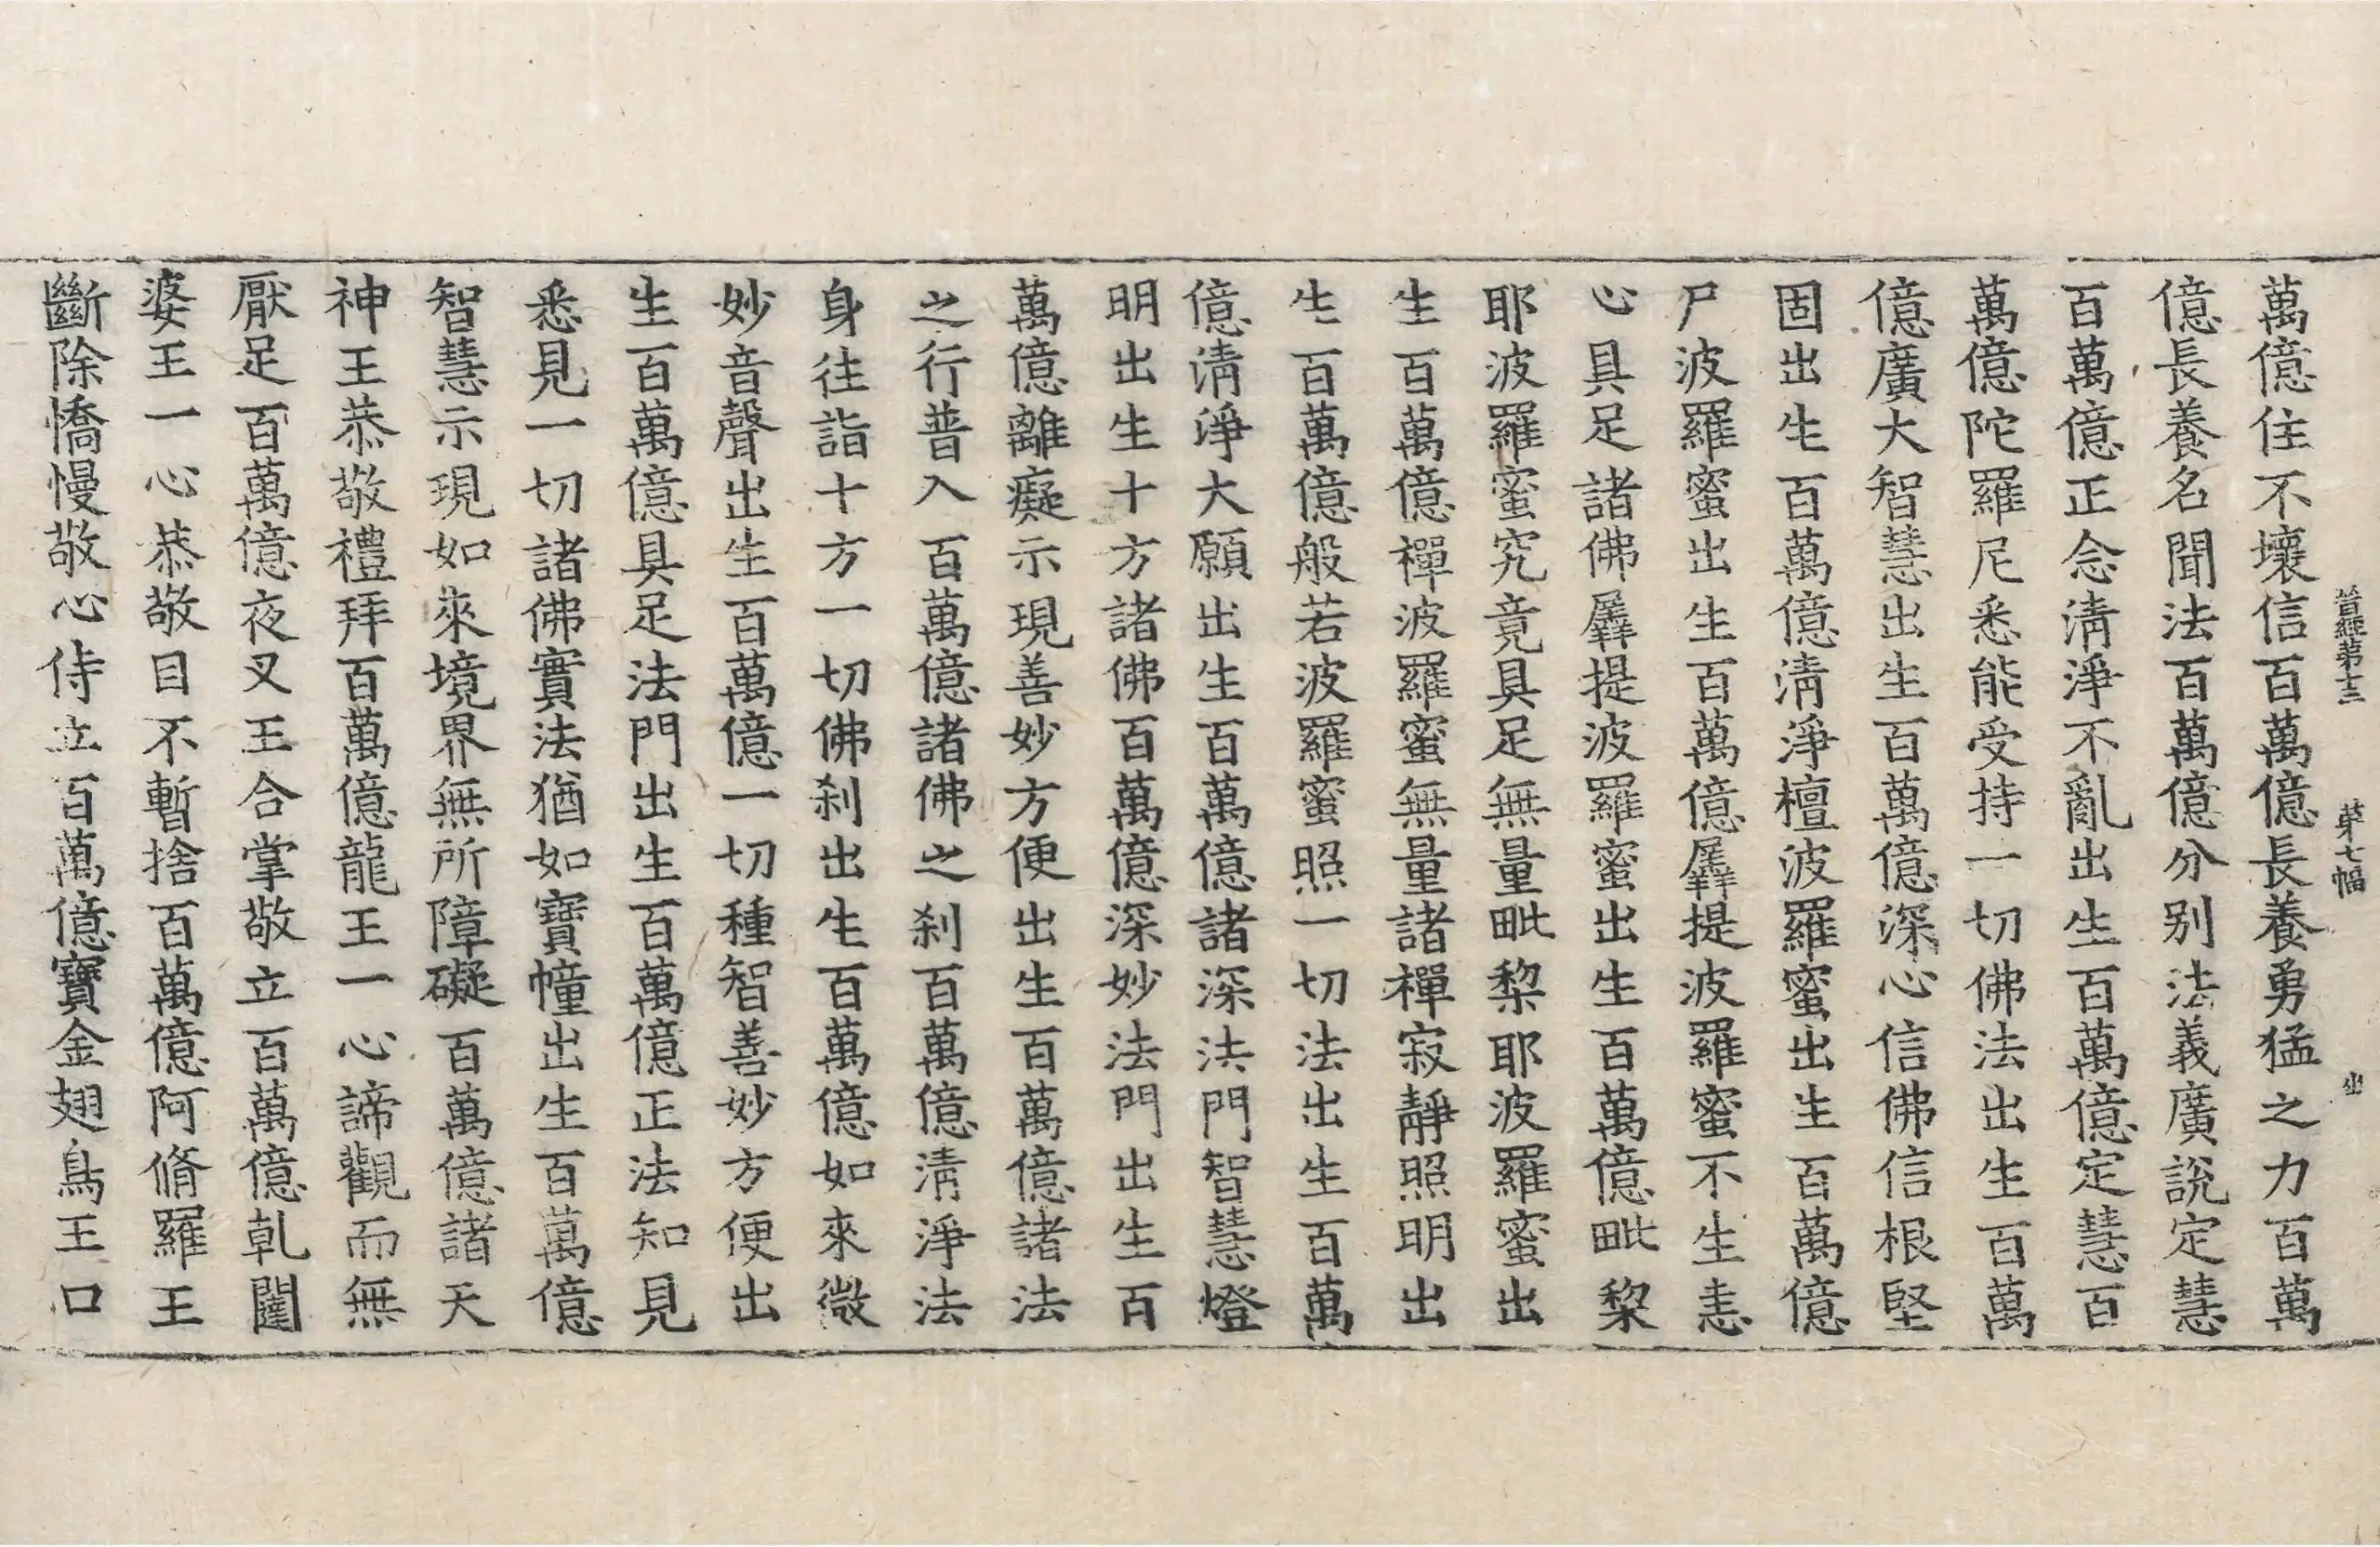 晉經第十三 第七幅 㘴
萬億住不壞信百萬億長養勇猛之力百萬
億長養名聞法百萬億分別法義廣說定慧
百萬億正念清淨不亂出生百萬億定慧百
萬億陀羅尼悉能受持一切佛法出生百萬
億廣大智慧出生百萬億深心信佛信根堅
固出生百萬億清淨檀波羅蜜出生百萬億
尸波羅蜜出生百萬億羼提波羅蜜不生恚
心具足諸佛羼提波羅蜜出生百萬億毗棃
耶波羅蜜究竟具足無量毗棃耶波羅蜜出
生百萬億禪波羅蜜無量諸禪寂靜照明出
生百萬億般若波羅蜜照一切法出生百萬
億清淨大願出生百萬億諸深法門智慧燈
明出生十方諸佛百萬億深妙法門出生百
萬億離癡示現善妙方便出生百萬億諸法
之行普入百萬億諸佛之刹百萬億清淨法
身往詣十方一切佛刹出生百萬億如來微
妙音聲出生百萬億一切種智善妙方便出
生百萬億具足法門出生百萬億正法知見
悉見一切諸佛實法猶如寶幢出生百萬億
智慧示現如來境界無所障礙百萬億諸天
神王恭敬禮拜百萬億龍王一心諦觀而無
厭足百萬億夜叉王合掌敬立百萬億乹闥
婆王一心恭敬目不暫捨百萬億阿脩羅王
斷除憍慢敬心侍立百萬億寶金翅鳥王口